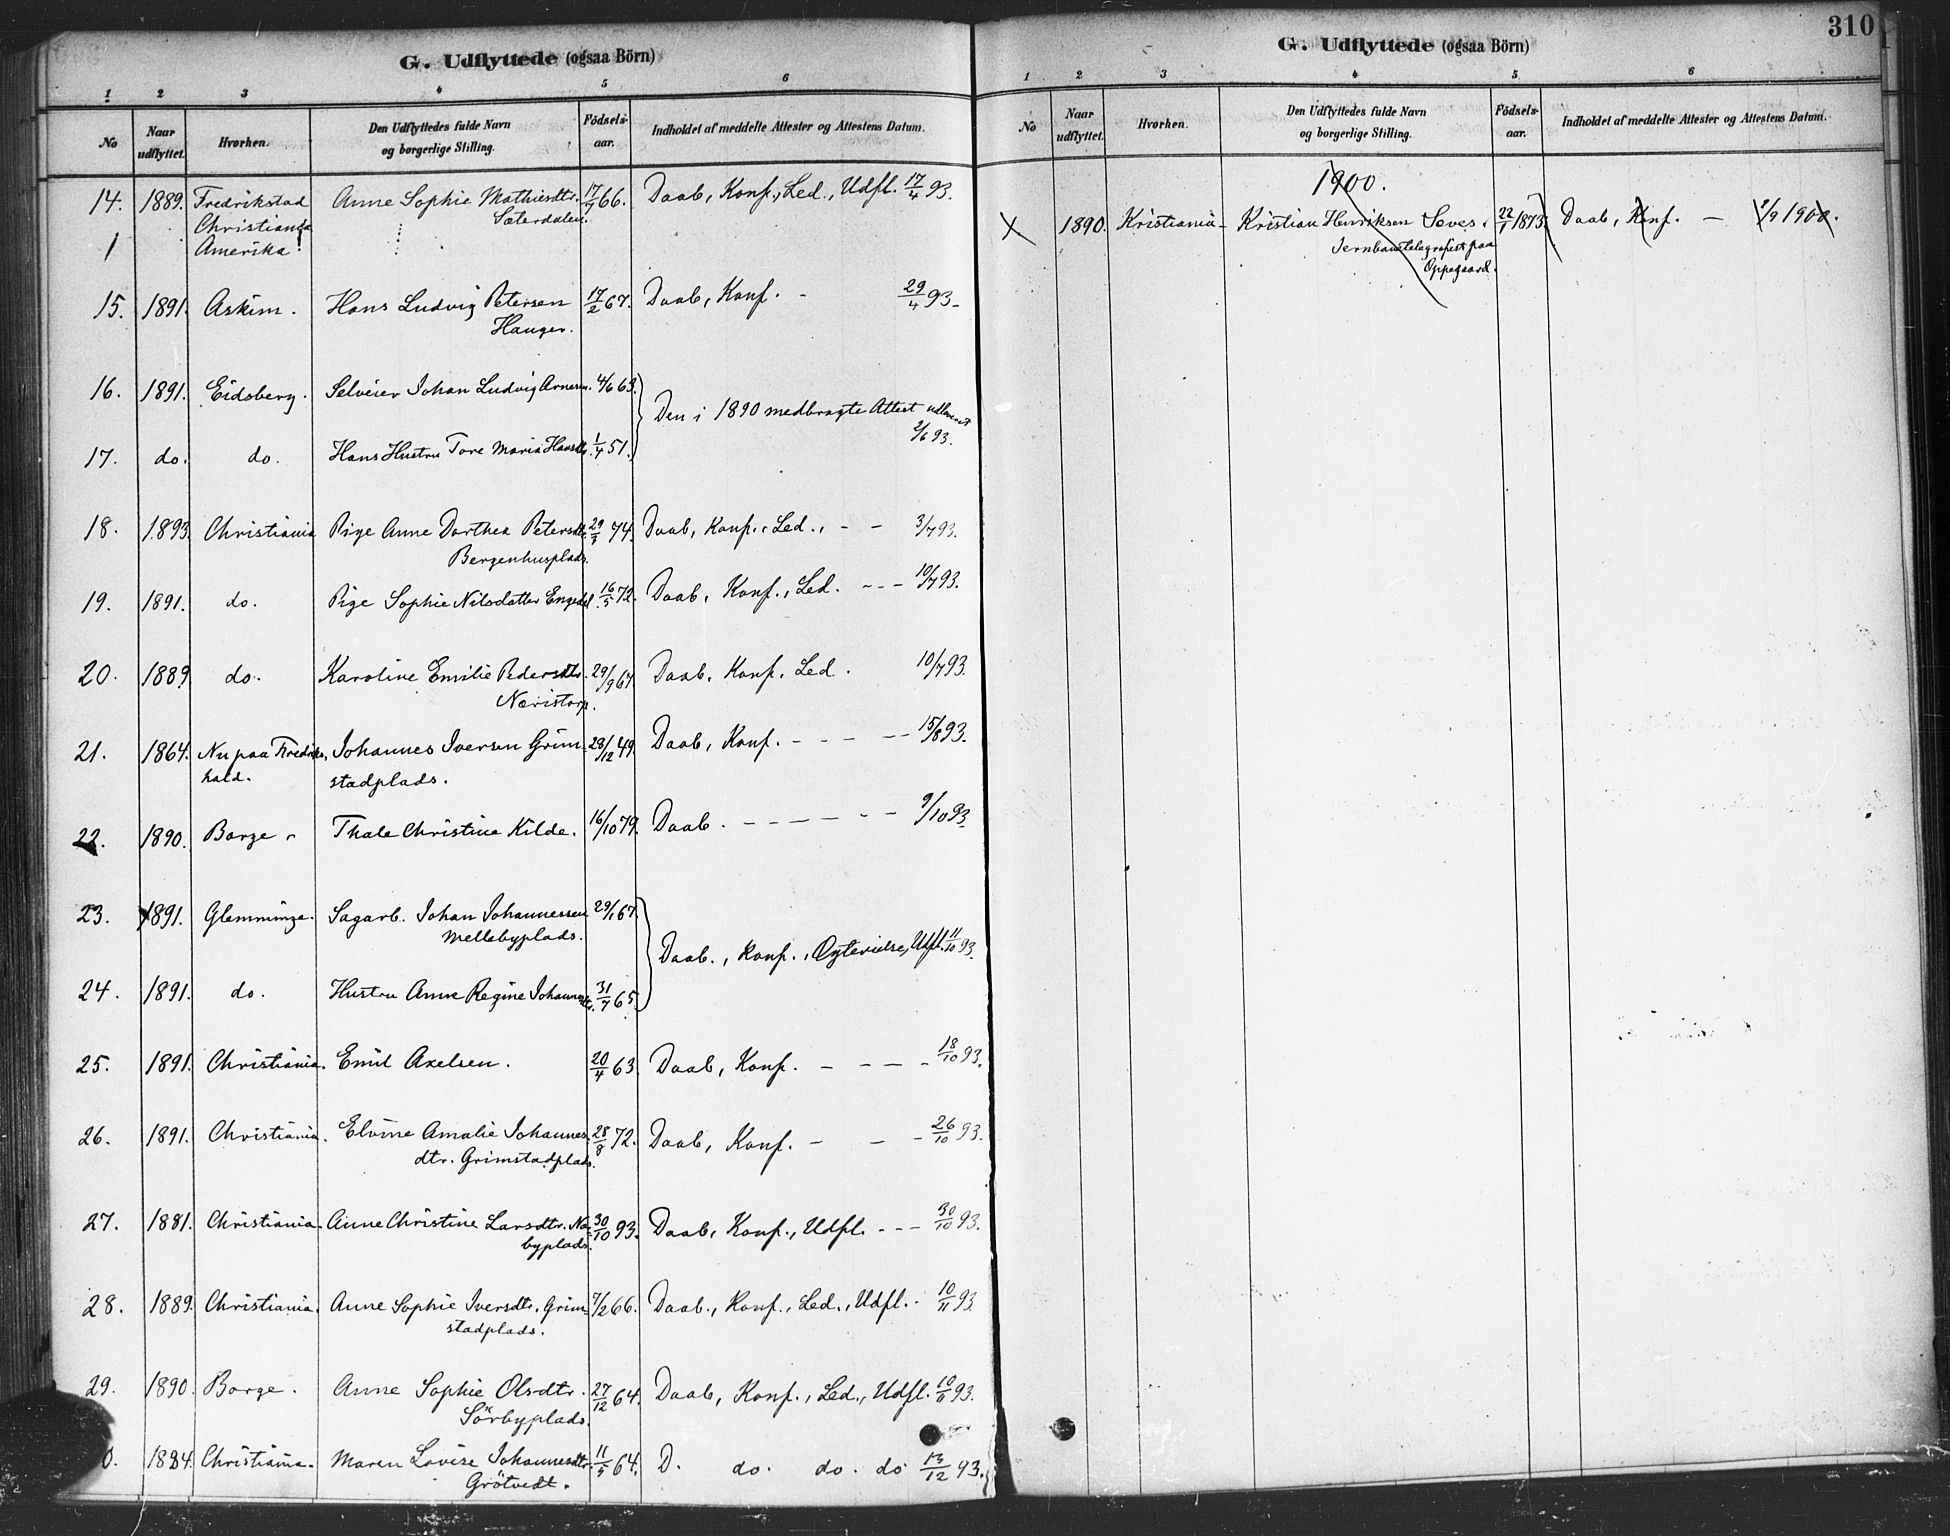 G. Udflyttede (ogsaa Börn)
1 2 3 4 5 6
No Naar udflyttet. Hvorhen. Den Udflyttedes fulde Navn og borgerlige Stilling. Födsels-aar. Indholdet af meddelte Attester og Attestens Datum.
14. 1889. Fredrikstad Anne Sophie Mathiesdtr. 17/7 66. Daab, Konf., Led., Udfl. 17/4 93.
Christiania Sæterdalen.
Amerika!
15. 1891. Askim. Hans Ludvig Petersen 17/2 67. Daab, Konf. - 29/4 93-
Hauger.
16. 1891. Eidsberg. Selveier Johan Ludvig Arnesen. 4/6 63.
Den i 1890 medbragte Attest udleveret
2/6 93.
17. do. do. Hans Hustru Tore Maria Hansdtr. 1/4 51.
18. 1893. Christiania Pige Anne Dorthea Petersdtr. 29/3 74. Daab, Konf., Led., - - 3/7 93.
Bergenhusplads.
19. 1891. do. Pige Sophie Nilsdatter Engedal 16/5 72. Daab, Konf., Led. - - - 10/7 93.
20. 1889 do. Karoline Emilie Pedersdtr. 29/9 67 Daab, Konf. Led. 10/7 93.
Næristorp.
21. 1864. Nu paa Fredriks- Johannes Iversen Grim- 28/12 49. Daab, Konf. - - - - - 15/8 93.
hald. stadplads.
22. 1890. Borge Thale Christine Kilde. 16/10 79. Daab. - - - - - - - 9/10 93
23. 1891. Glemminge. Sagarb. Johan Johannessen 29/1 67.
Mellebyplads.
Daab., Konf., Ægtevielse, Udfl. 11/10 93.
24. 1891. do. Hustru Anne Regine Johannesdtr. 31/7 65.
25. 1891. Christiania. Emil Axelsen. 20/4 63. Daab, Konf. - - - - 18/10 93.
26. 1891. Christiania. Elvine Amalie Johannes- 28/8 72. Daab, Konf. - - - 26/10 93.
dtr. Grimstadplads.
27. 1881. Christiania. Anne Christine Larsdtr. Næ- 30/10 93. Daab, Konf., Udfl. - - - 30/10 93.
byplads.
28. 1889. Christiania. Anne Sophie Iversdtr. Grim- 7/2 66. Daab., Konf., Led., Udfl. 10/11 93.
stadplads.
29. 1890. Borge. Anne Sophie Olsdtr. 27/12 64. Daab, Konf., Led., Udfl. 10/11 93.
Sörbyplads.
0. 1884. Christiania. Maren Lovise Johannesdtr. 11/5 64. D. do. do. do. 13/12 93.
Grötvedt.
310
G. Udflyttede (ogsaa Börn)
1 2 3 4 5 6
No Naar udflyttet. Hvorhen. Den Udflyttedes fulde Navn og borgerlige Stilling. Födsels-aar. Indholdet af meddelte Attester og Attestens Datum.
1900.
1890. Kristiania- Kristian Henriksen 22/1 1873. Daab, Konf. - 1900.
Jernbanetelegrafist paa
Oppegaard.